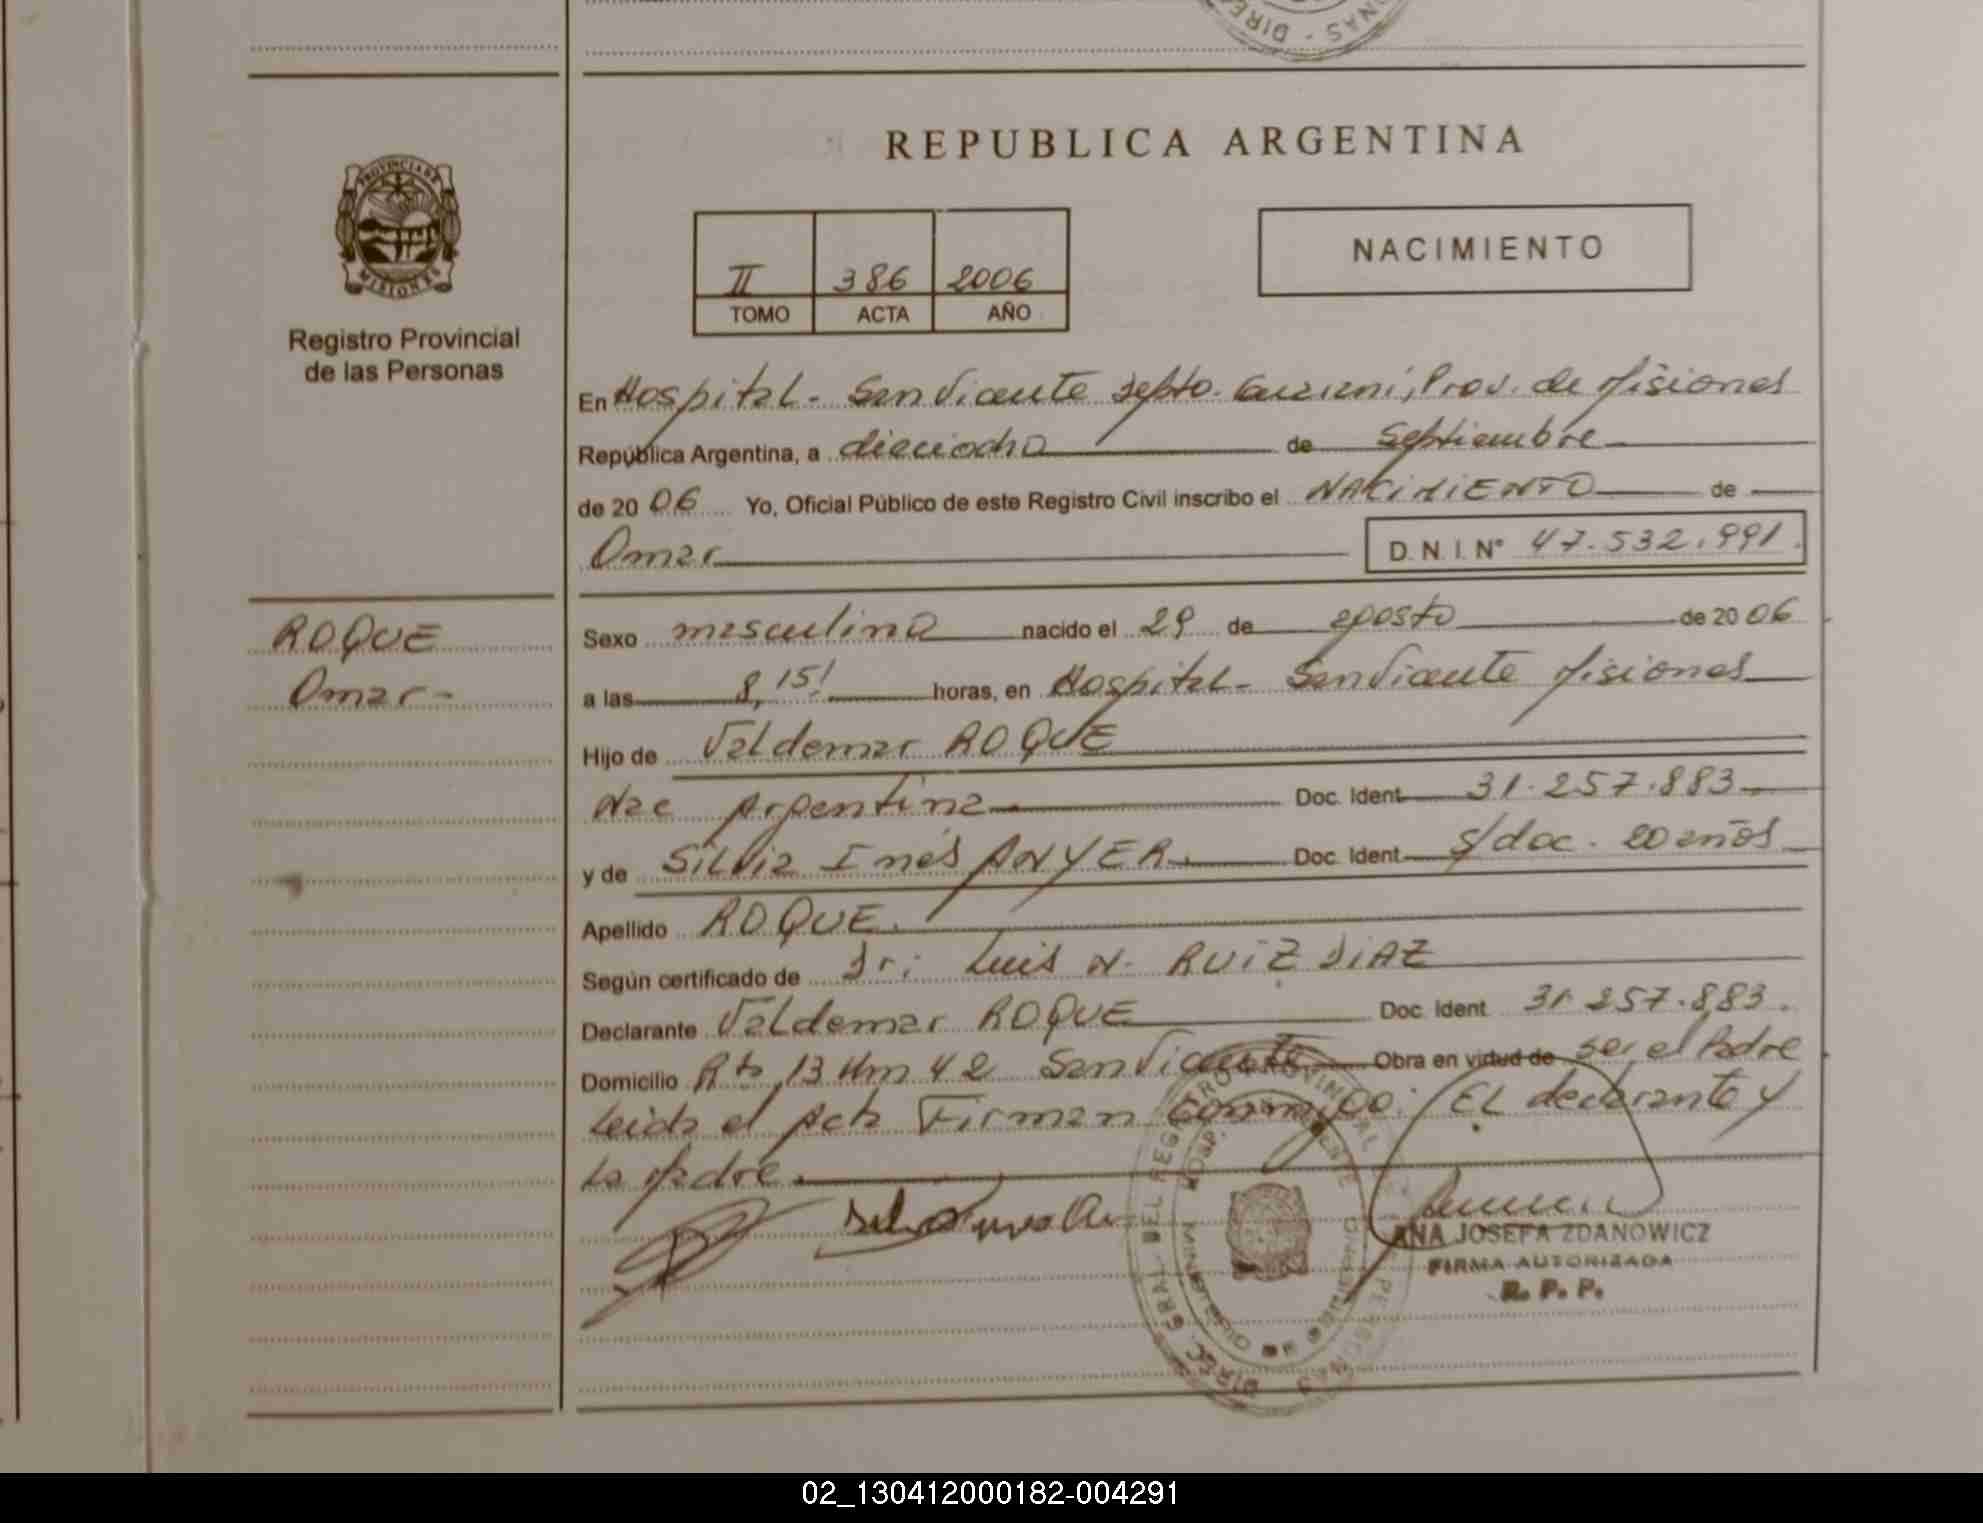 REPUBLICA ARGENTINA
PROVINCIA DE
MISIONES
Registro Provincial
de las Personas
II 386 2006
TOMO ACTA AÑO
NACIMIENTO
En Hospital - San Vicente Depto. Guaraní, Prov. de Misiones
República Argentina, a dieciocho de Septiembre
de 2006 Yo, Oficial Público de este Registro Civil inscribo el NACIMIENTO de
Omar D. N. I. N° 47.532.991.
ROQUE
Omar -
Sexo masculino nacido el 29 de agosto de 2006
a las 8,15' horas, en Hospital - San Vicente Misiones
Hijo de Valdemar ROQUE
Nac Argentina Doc. Ident. 31.257.883
y de Silvia Inés ANYER. Doc. Ident. s/doc. 20 años
Apellido ROQUE.
Según certificado de Dr: Luis N. RUIZ DIAZ
Declarante Valdemar ROQUE Doc. Ident. 31.257.883.
Domicilio Rta 13 Km 42 San Vicente Obra en virtud de ser el Padre
Leida el Acta Firman conmigo: EL declarante y
la Madre.
ANA JOSEFA ZDANOWICZ
FIRMA AUTORIZADA
R. P. P.
02_130412000182-004291